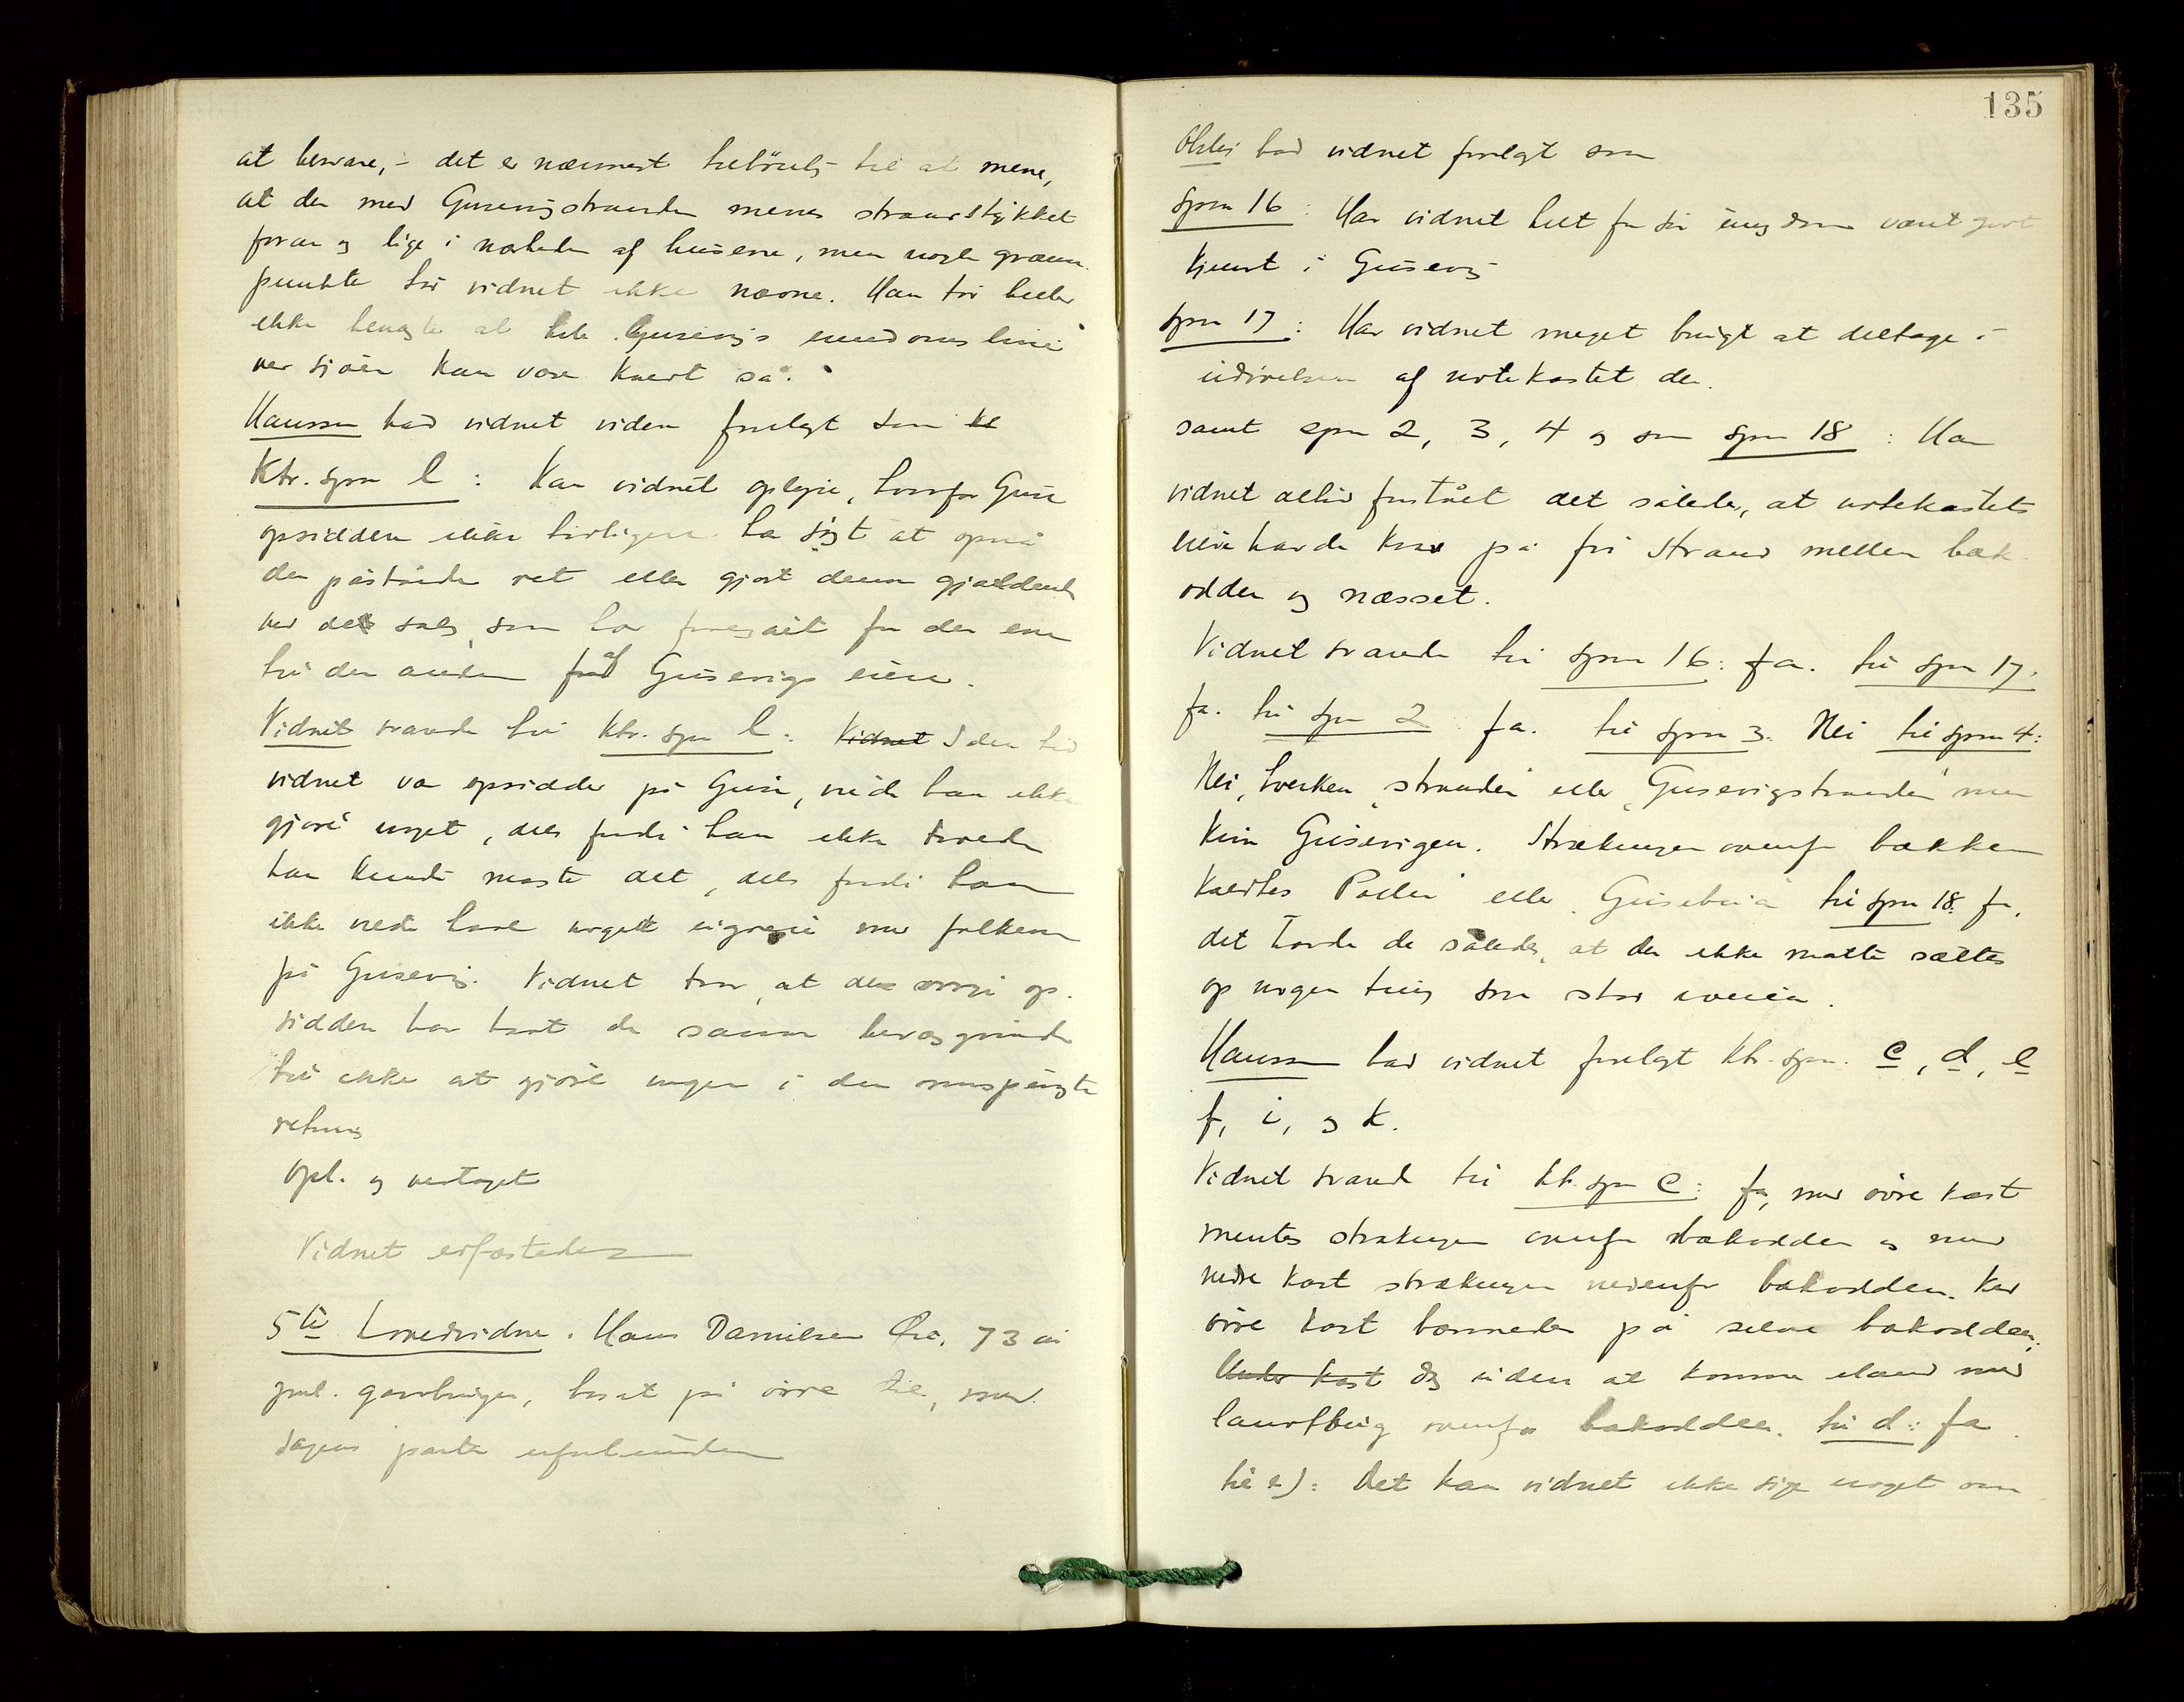 at besvare, - det er nærmest tilbøielig til at mene,
at der med Gusevigstranden menes strandstykket
foran og lige i nærheden af husene, men nogle grænse-
punkte tør vidnet ikke nævne. Han tør heller
ikke benægte at hele Gusevigs eiendoms linie
ved sjøen kan være kaldt så.
Hanssen bad vidnet viden forelagt som
Ktr. spm l : Kan vidnet oplyse, hvorfor Guse
opsidderne ikke tidligere ha søgt at opnå
den påståede ret eller gjort denne gjældende
ved de salg, som har foregåit fra den ene
til den anden af Gusevigs eiere.
Vidnet svarede til Ktr. spm l : Vidnet I den tid
vidnet var opsidder på Guse, vilde han ikke
gjøre noget, dels fordi han ikke trode
han kunde magte det, dels fordi han
ikke vilde have noget ugreie med folkene
på Gusevig. Vidnet tror, at de øvrige op-
sidder har havt de samme bevæggrunde
til ikke at gjøre nogen i den omspurgte
retning
Opl. og vedtaget
Vidnet edfæstedes
5te hovedvidne. Hans Danielsen 73 år
fhv. gaardbruger, bosat på øvre med
sagens parter uforbunden
135
bad vidnet forelagt som
Spm 16 : Har vidnet helt fra sin ungdom været godt
kjendt i Gusevig
Spm 17 : Har vidnet meget brugt at deltage i
udøvelsen af notekastet der.
samt spm 2, 3, 4 og som spm 18 : Har
vidnet altid forstået det således, at notekastets
eiere havde krav på fri strand mellem bæk-
odden og næsset.
Vidnet svarede til spm 16: Ja. til spm 17.
Ja. til spm 2 Ja. til spm 3. Nei til spm 4:
Nei, hverken "stranden" eller "Gusevigstranden" men
kun Gusevigen. Strækningen ovenfor bækken
kaldtes Pollen eller til spm 18: Ja,
det havde de således, at der ikke måtte sættes
op nogen ting som stod iveien.
Hanssen bad vidnet forelagt ktr. spm. c, d, e
f, i, og k.
Vidnet svared til ktr. spm c: Ja, med øvre kast
mentes strækningen ovenfor bækodden og med
nedre kast strækningen nedenfor bækodden. Ved
øvre kast landede på selve bækodden;
Under kast og uden at komme iland med
ovenfor bækodden. til d: Ja
til e): Det kan vidnet ikke sige noget om